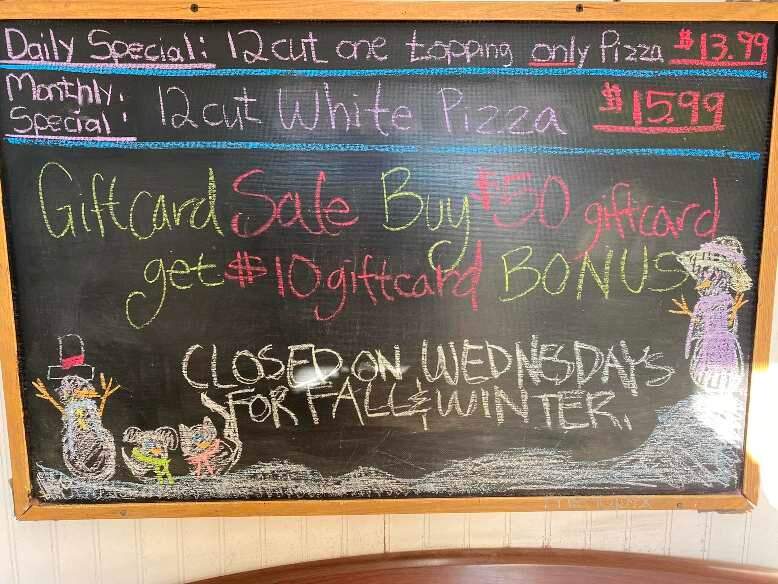 Daily Special: 12 cut one topping only Pizza $13.99
Monthly Special: 12 cut White Pizza $15.99
Giftcard Sale Buy $50 giftcard
get $10 giftcard BONUS
CLOSED ON WEDNESDAYS
FOR FALL & WINTER.